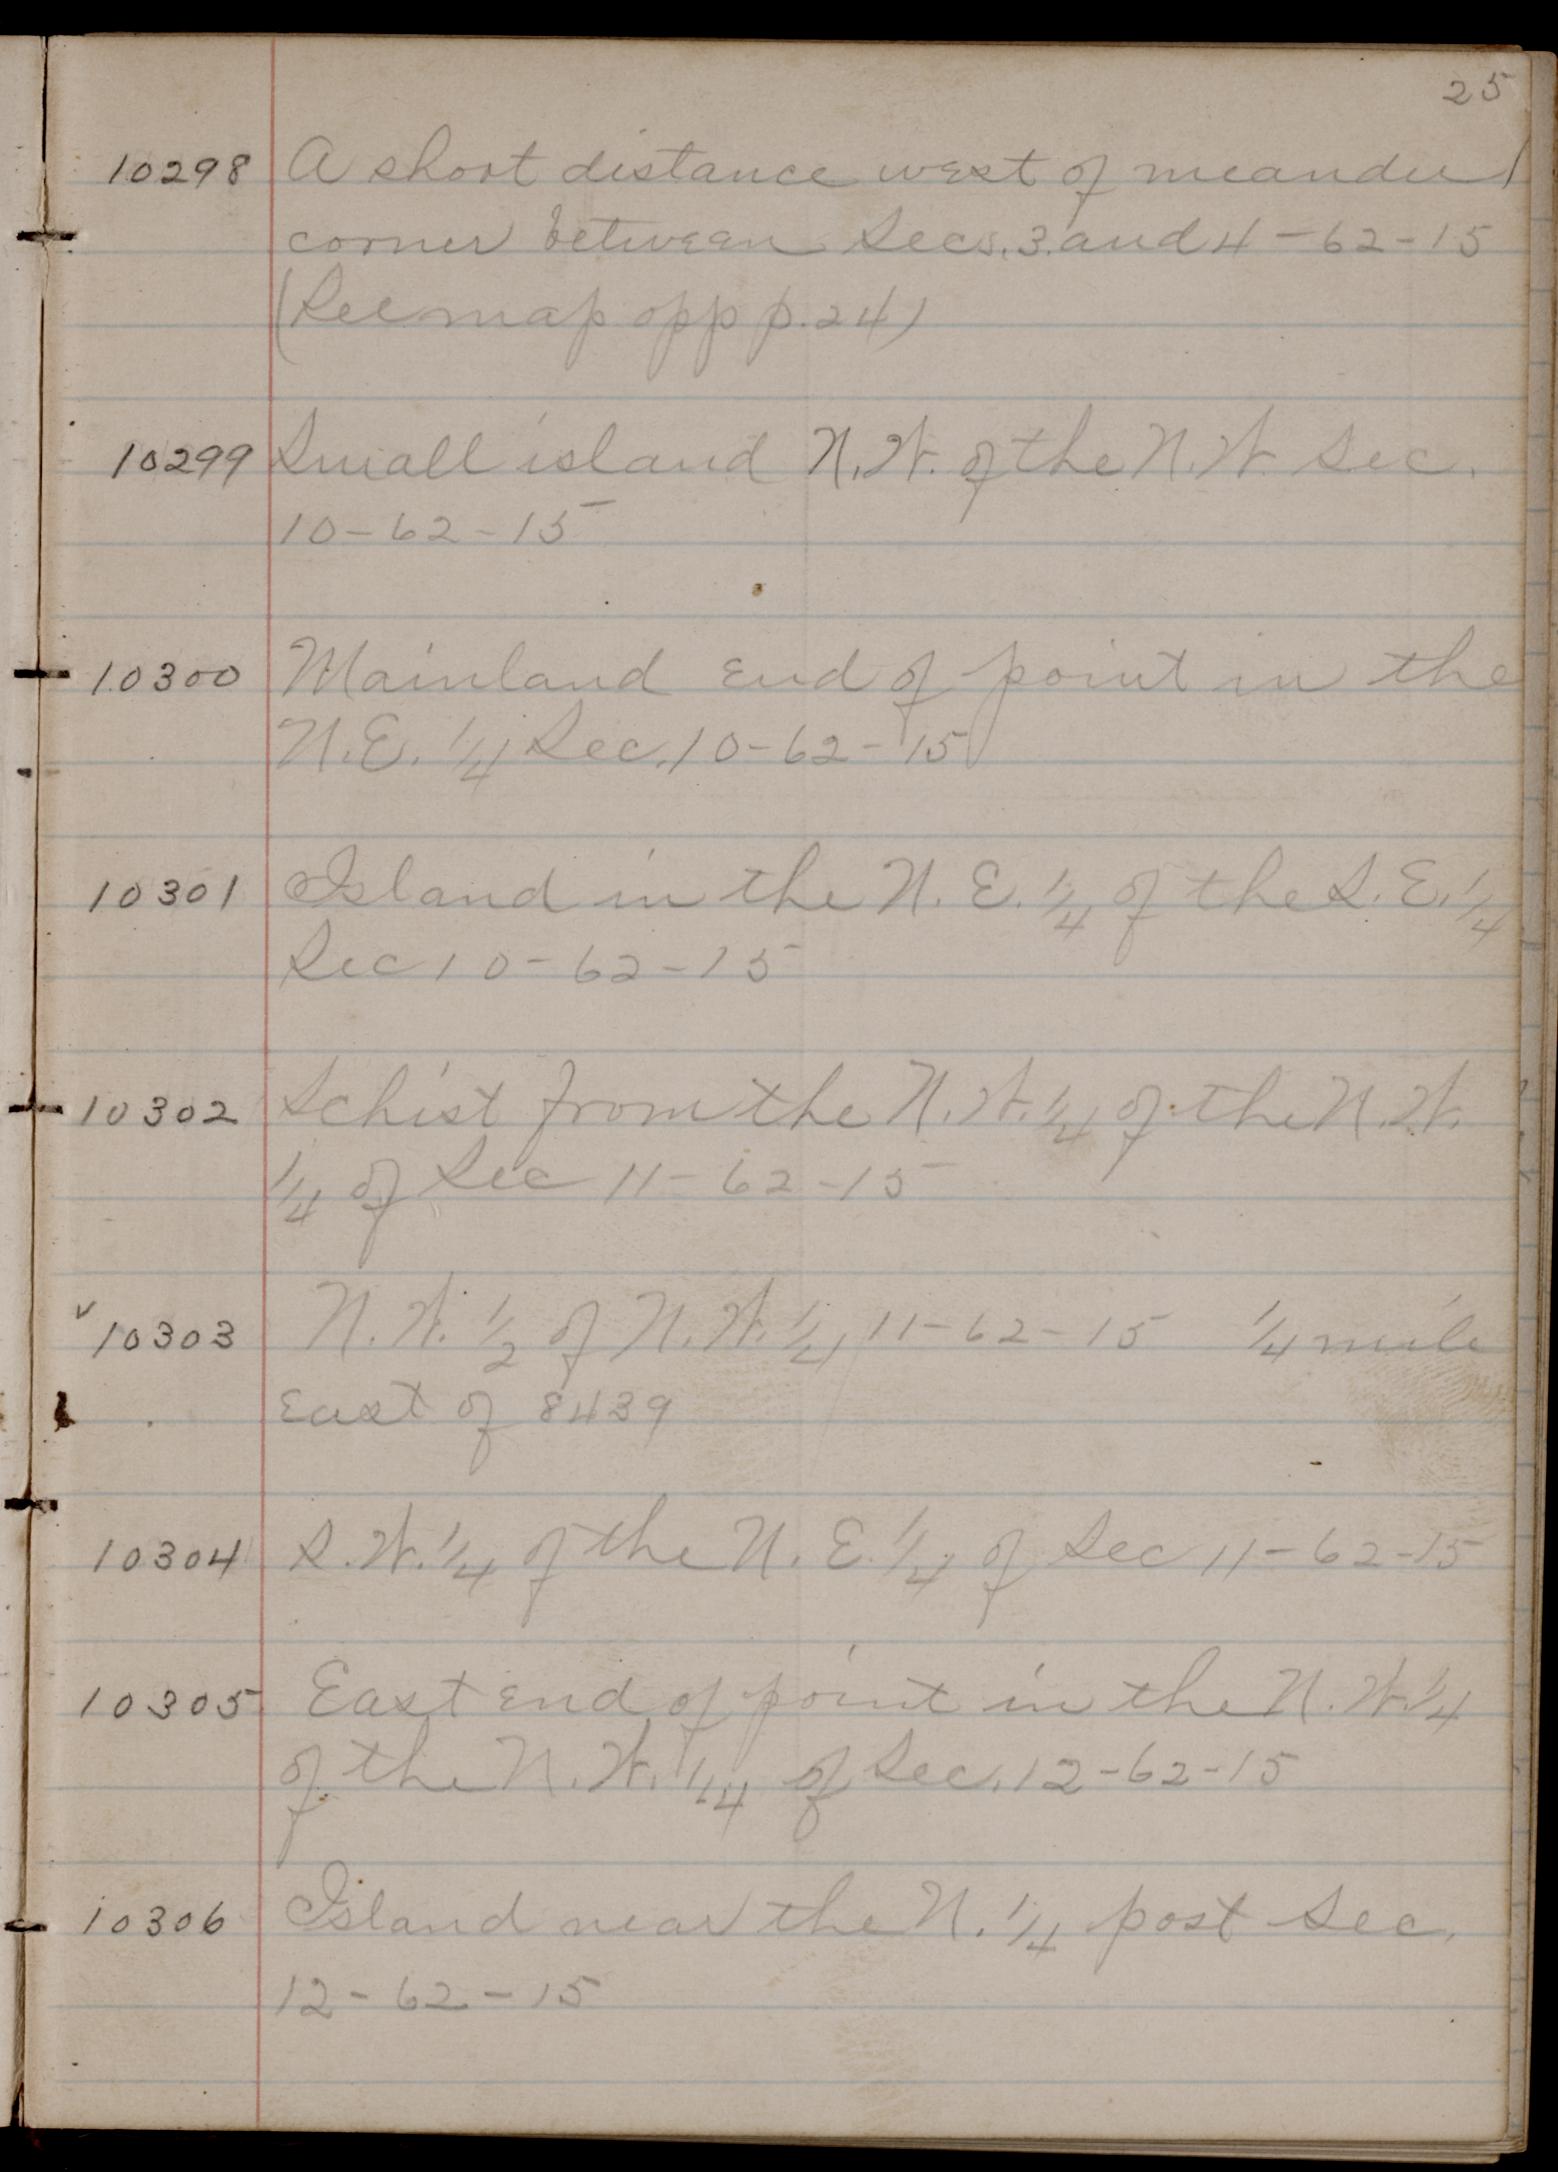 25
10298 A short distance west of meander
corner between Secs. 3. and 4 - 62 - 15
(See map opp p. 24)
10299 Small island N.W. of the N.W. Sec.
10 - 62 - 15
10300 Mainland end of point in the
N.E. 1/4 Sec. 10 - 62 - 15
10301 Island in the N.E. 1/4 of the S.E. 1/4
Sec 10 - 62 - 15
10302 Schist from the N.W. 1/4 of the N.W.
1/4 of Sec 11 - 62 - 15
✓ 10303 N.W. 1/2 of N.W. 1/4 11 - 62 - 15 1/4 mile
east of 8439
10304 S.W. 1/4 of the N.E. 1/4 of Sec 11 - 62 - 15
10305 East end of point in the N.W. 1/4
of the N.W. 1/4 of Sec. 12 - 62 - 15
10306 Island near the N. 1/4 post Sec.
12 - 62 - 15